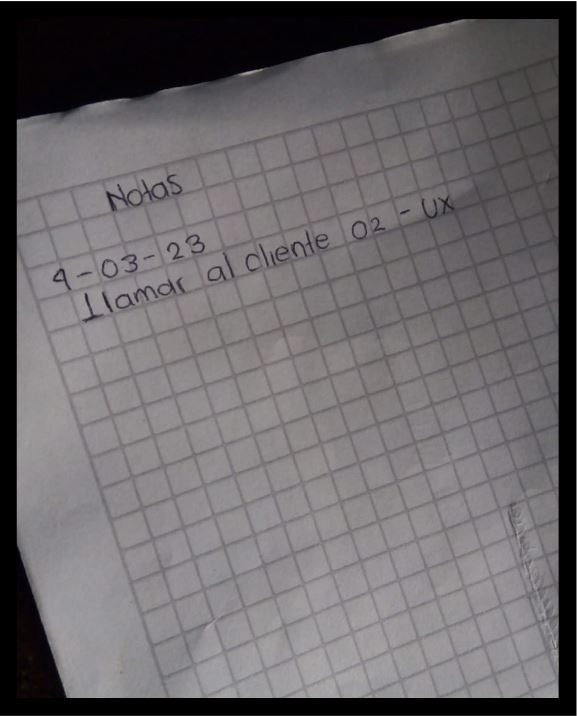 Notas
4-03-23
Llamar al cliente 02 - UX